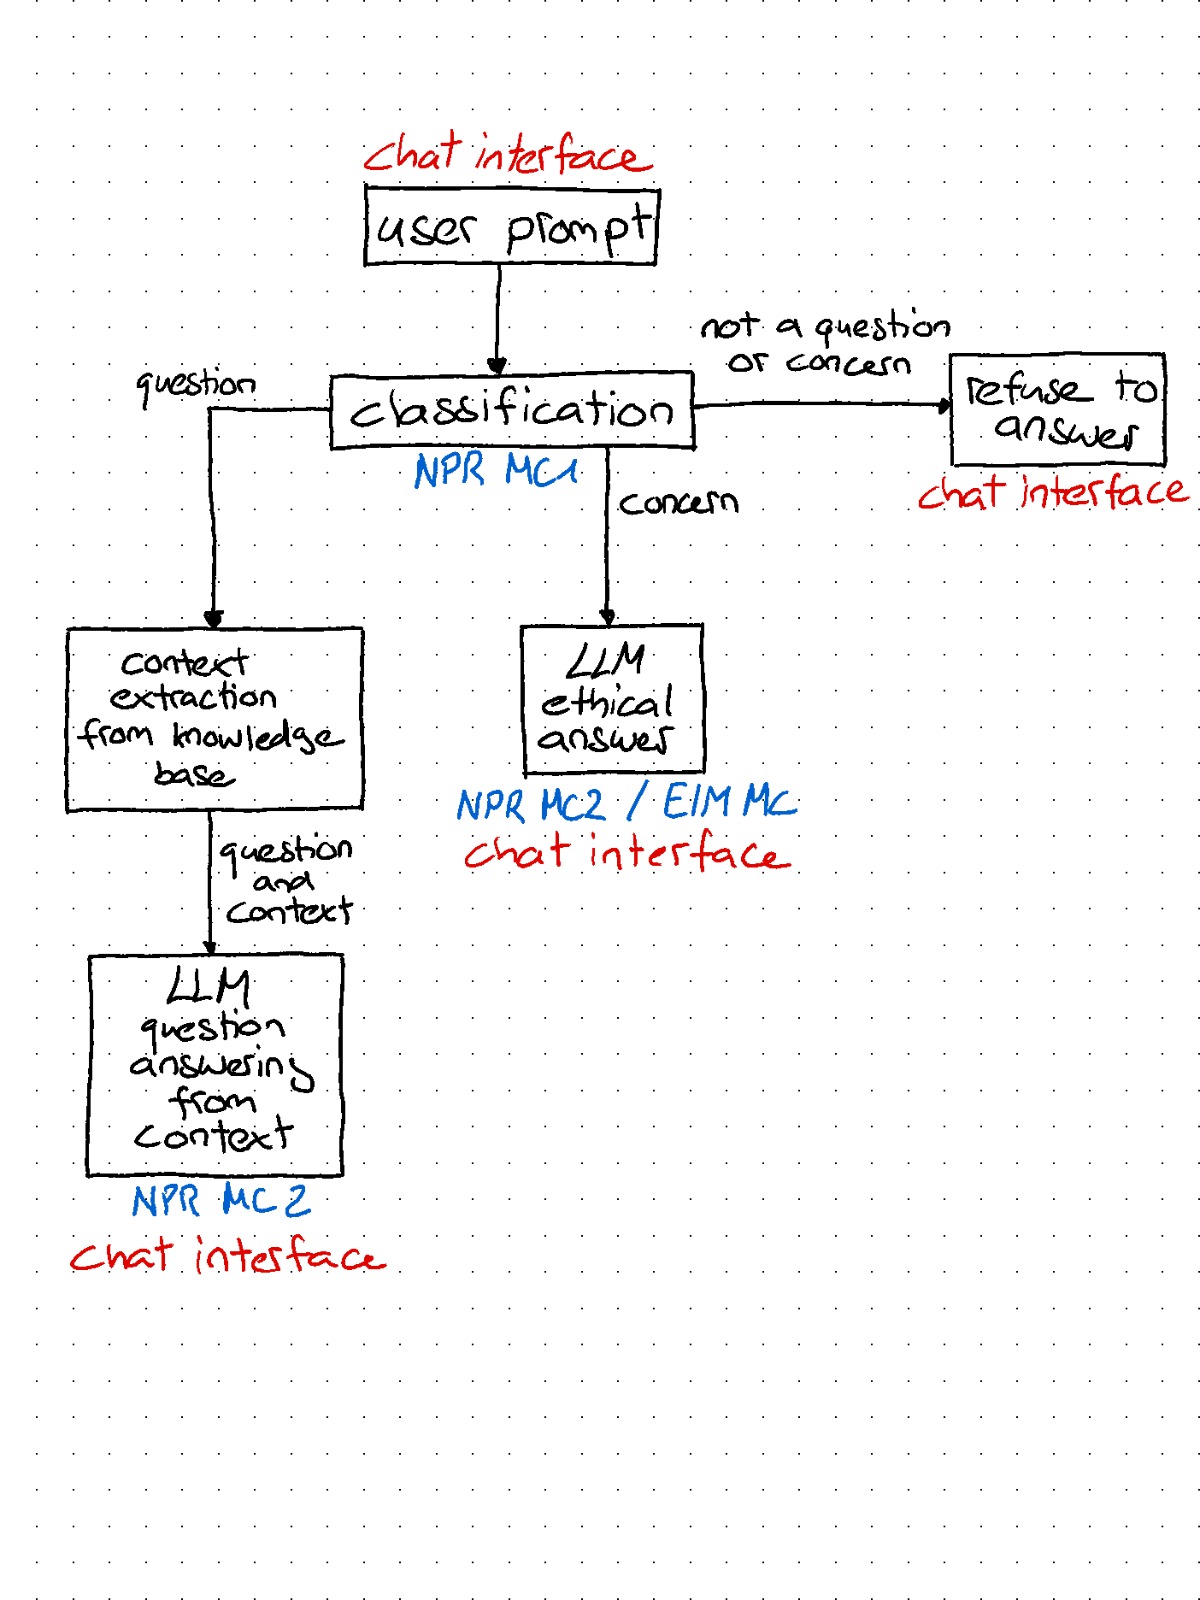 chat interface
user prompt
not a question
or concern
question
classification
refuse to
answer
NPR MC1
concern
chat interface
context
extraction
from knowledge
base
LLM
ethical
answer
NPR MC2 / EIM MC
chat interface
question
and
context
LLM
question
answering
from
context
NPR MC2
chat interface